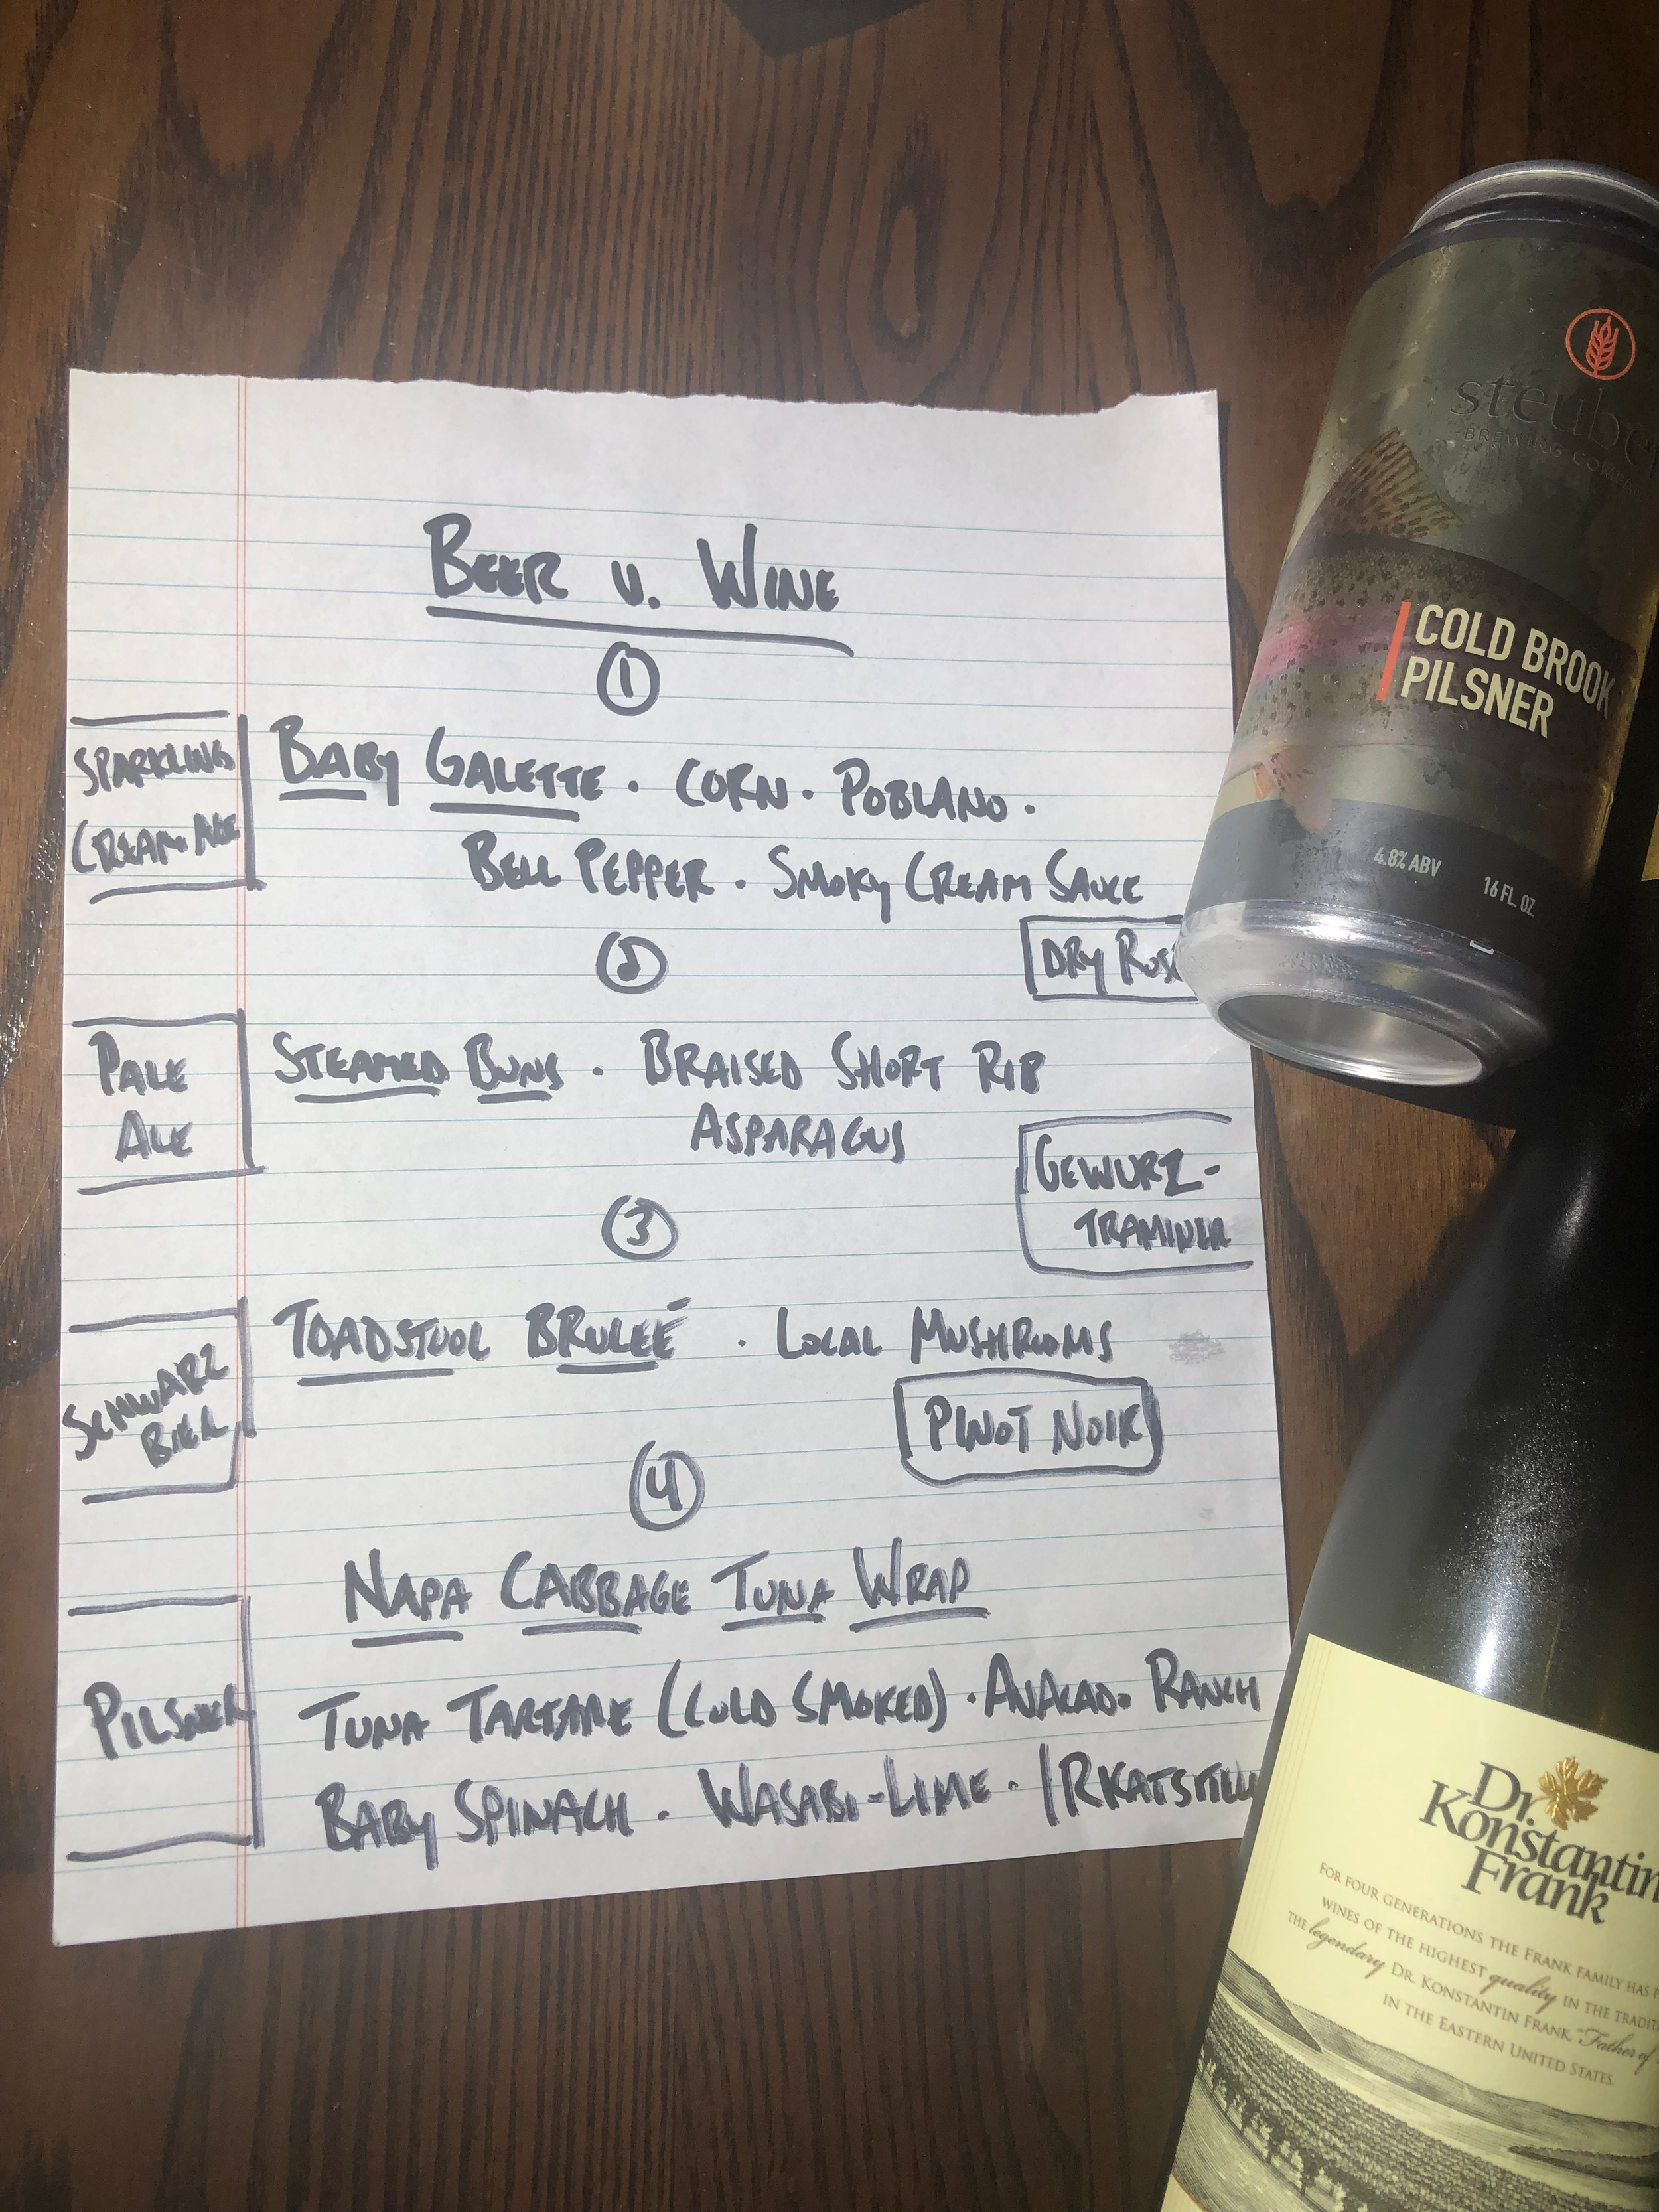 BEER v. WINE
1
SPARKLING
CREAM ALE
BABY GALETTE · CORN · POBLANO ·
BELL PEPPER · SMOKY CREAM SAUCE
DRY
2
PALE
ALE
STEAMED BUNS · BRAISED SHORT RIB
ASPARAGUS
GEWURZ-
TRAMINER
3
SCHWARZ
BIER
TOADSTOOL BRULEÉ · LOCAL MUSHROOMS
PINOT NOIR
4
NAPA CABBAGE TUNA WRAP
PILSNER
TUNA TARTARE (COLD SMOKED) · AVACADO RANCH
BABY SPINACH · WASABI-LIME ·
steube
BREWING COMPA
COLD BROOK
PILSNER
4.8% ABV
16 FL. OZ
Dr.
Konstantin
Frank
FOR FOUR GENERATIONS THE FRANK FAMILY HAS
WINES OF THE HIGHEST quality IN THE TRADIT
THE legendary DR. KONSTANTIN FRANK, "Father of
IN THE EASTERN UNITED STATES.